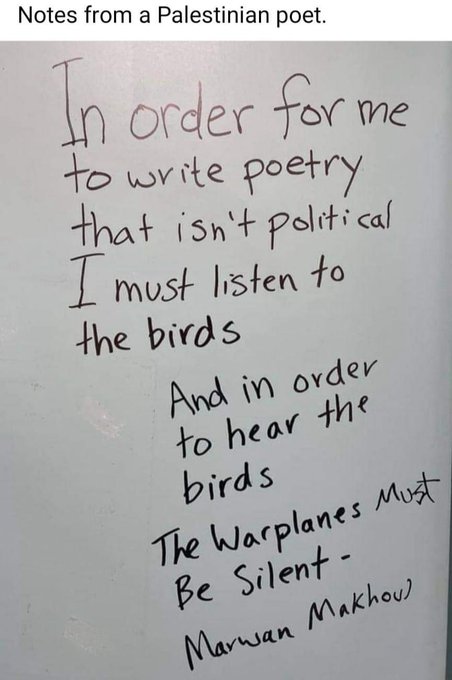 Notes from a Palestinian poet.
In order for me
to write poetry
that isn't political
I must listen to
the birds
And in order
to hear the
birds
The Warplanes Must
Be Silent -
Marwan Makhoul